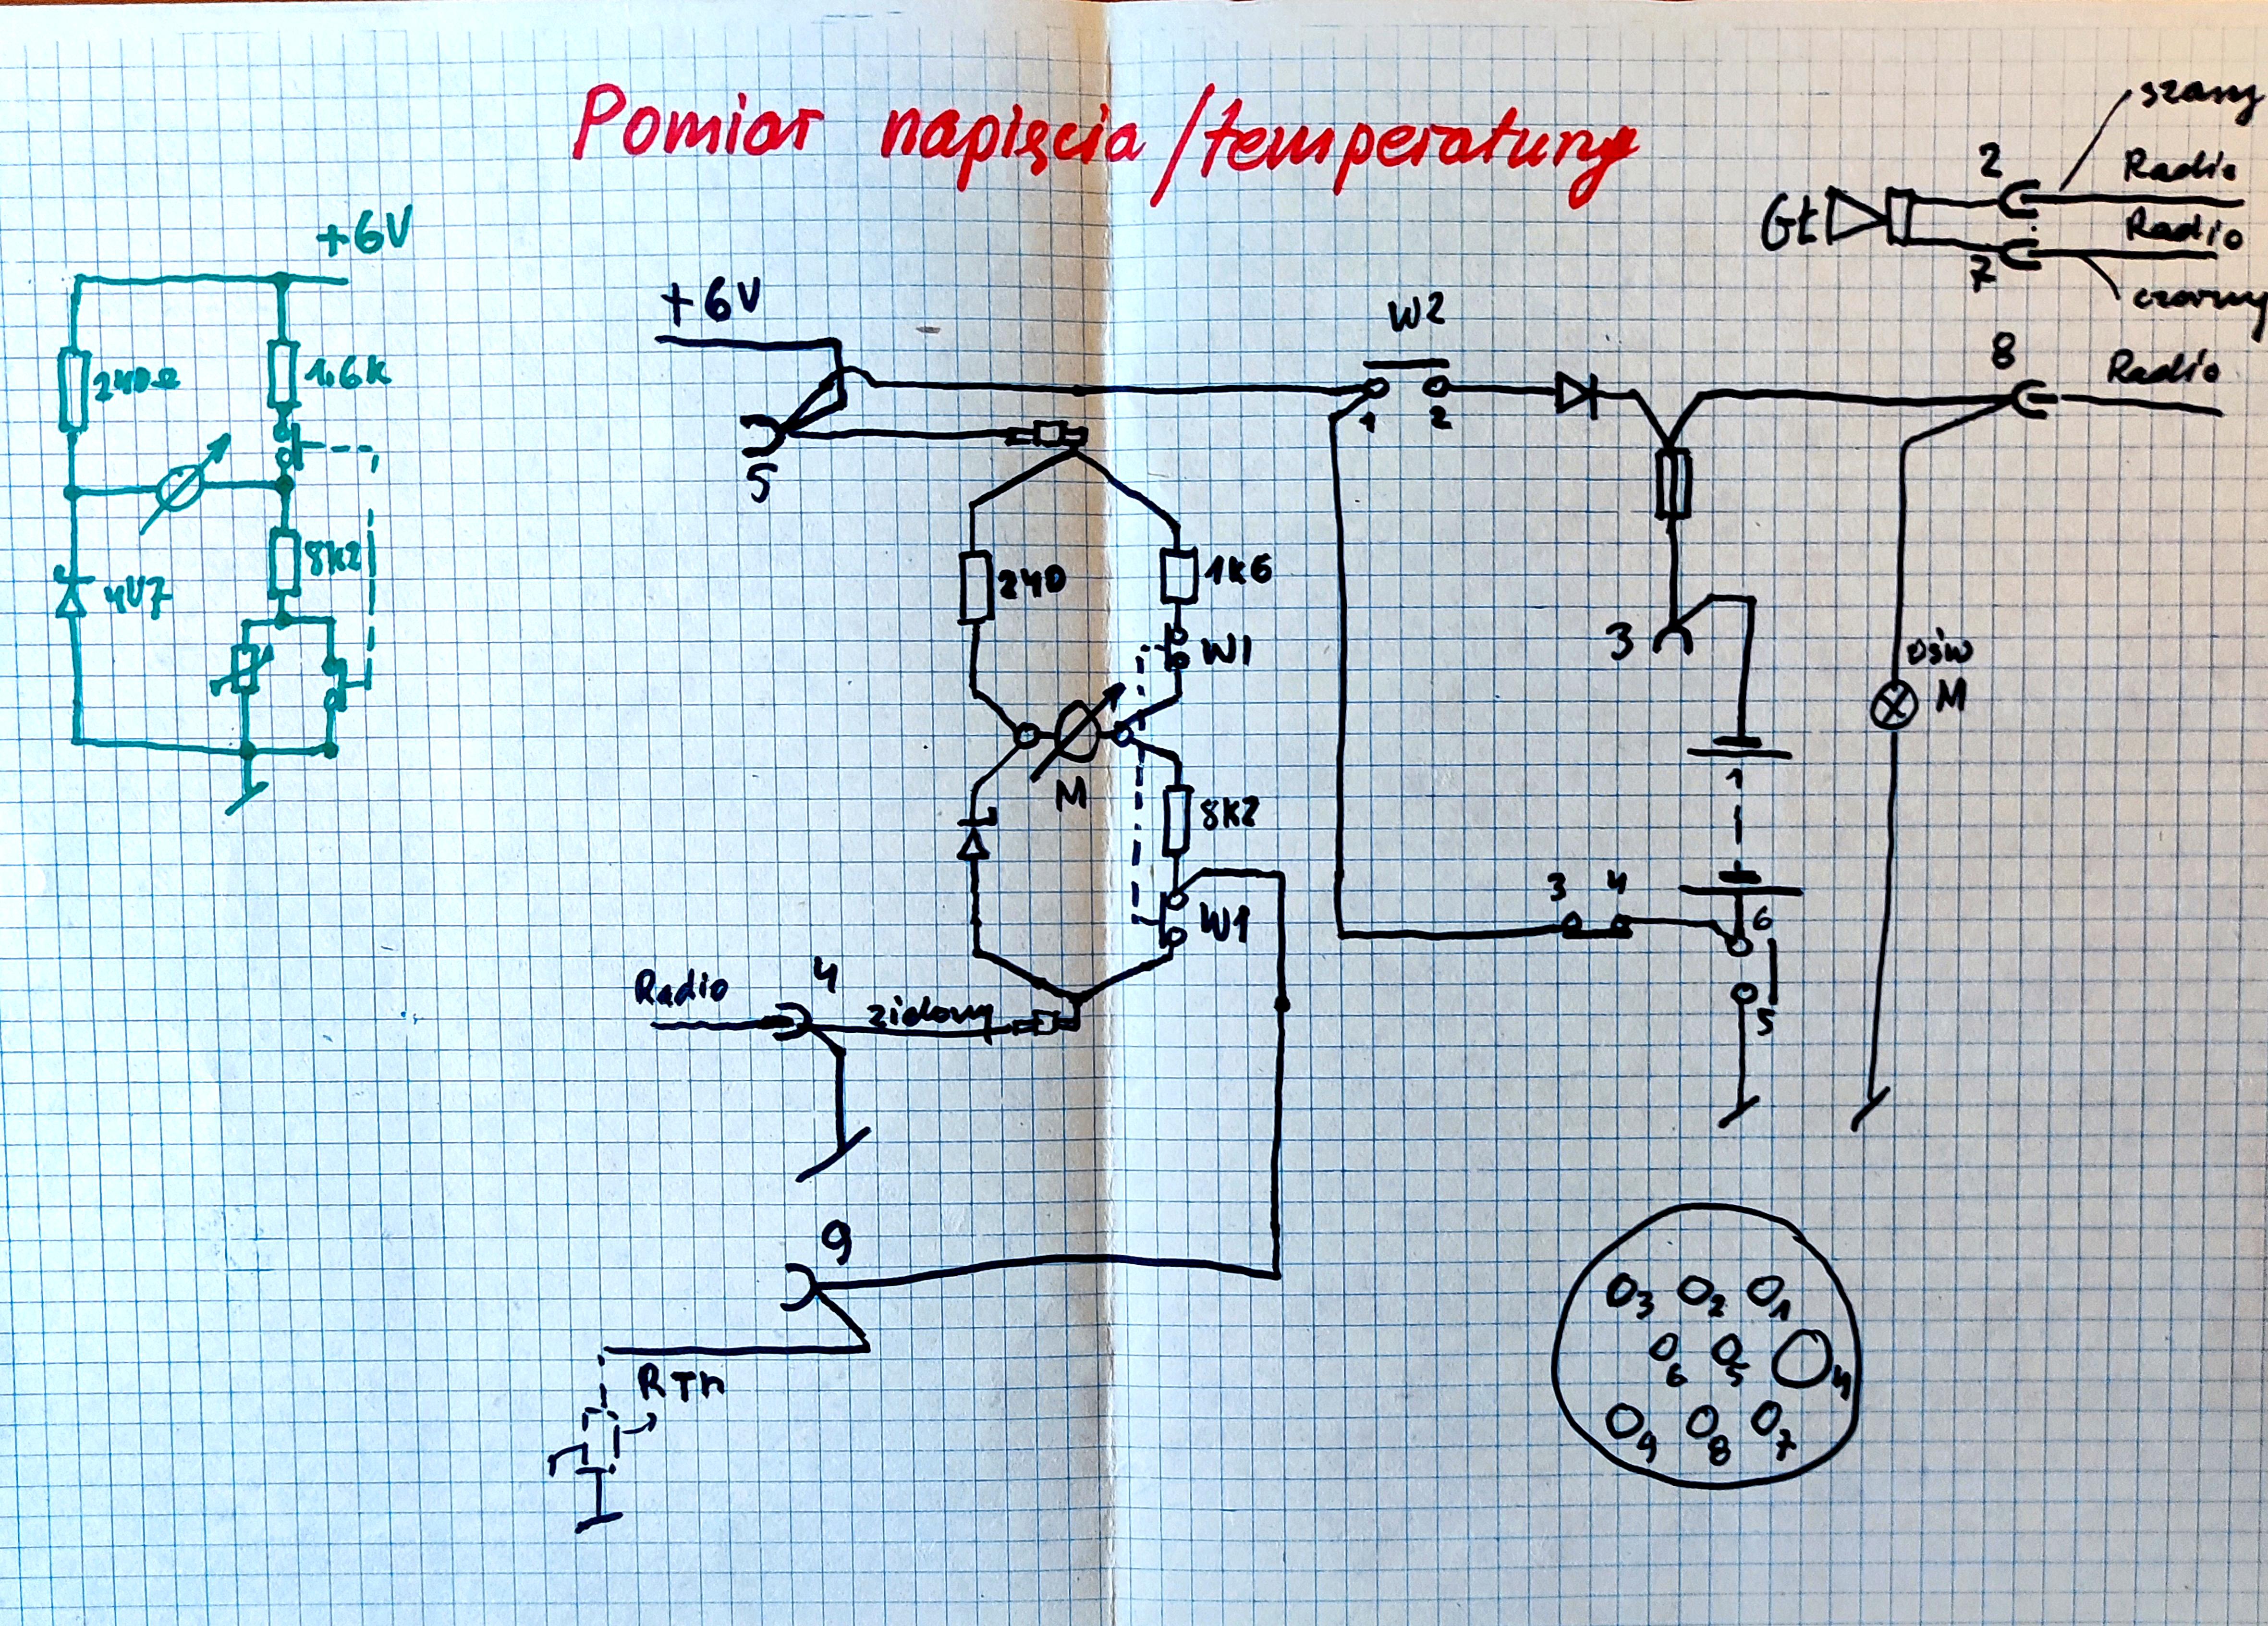 Pomiar napięcia/temperatury
szary
2
Radio
Gł
Radio
7
czarny
+6V
+6V
W2
8
Radio
240Ω
1.6k
1
2
5
8k2
4V7
240
1k6
W1
3
ośw
M
M
1
8k2
3 4
6
W1
5
Radio
4
zielony
9
RTh
3 2 1
6 5 4
9 8 7